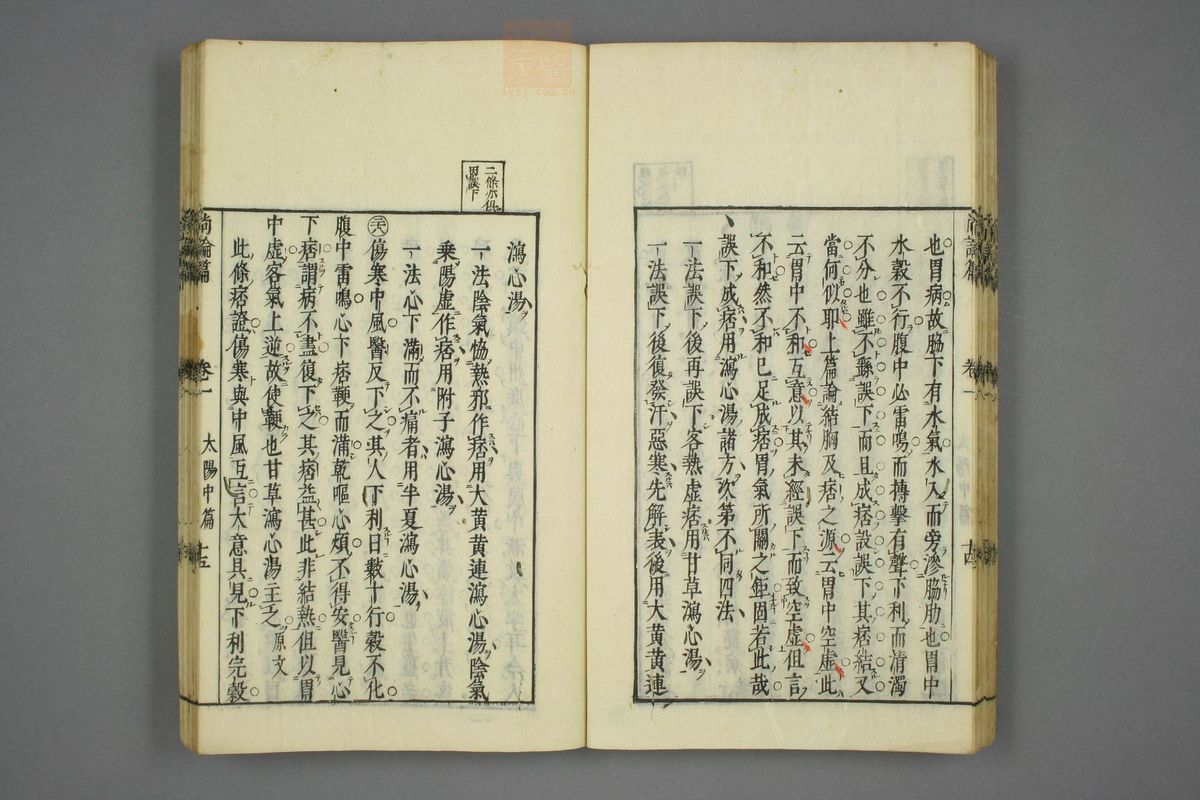 也胃病故脇下有水氣水入而旁滲脇肋也胃中
水穀不行腹中必雷鳴而搏擊有聲下利而清濁
不分也雖不繇誤下而且成痞設誤下其痞結又
當何似耶上篇論結胸及痞之源云胃中空虛此
云胃中不和互意以其未經誤下而致空虛但言
不和然不和已足成痞胃氣所關之鉅固若此哉
誤下成痞用瀉心湯諸方次第不同四法
一法誤下後再誤下客熱虛痞用甘草瀉心湯
一法誤下後復發汗惡寒先解表後用大黃黃連
尚論篇 卷一 太陽中篇
瀉心湯
一法陰氣恊熱邪作痞用大黃黃連瀉心湯陰氣
乘陽虛作痞用附子瀉心湯
一法心下滿而不痛者用半夏瀉心湯
二條亦俱
因誤下
傷寒中風醫反下之其人下利日數十行穀不化
腹中雷鳴心下痞鞕而滿乾嘔心煩不得安醫見心
下痞謂病不盡復下之其痞益甚此非結熱但以胃
中虛客氣上逆故使鞕也甘草瀉心湯主之 原文
此條痞證傷寒與中風互言大意具見下利完穀
尚論篇 卷一 太陽中篇